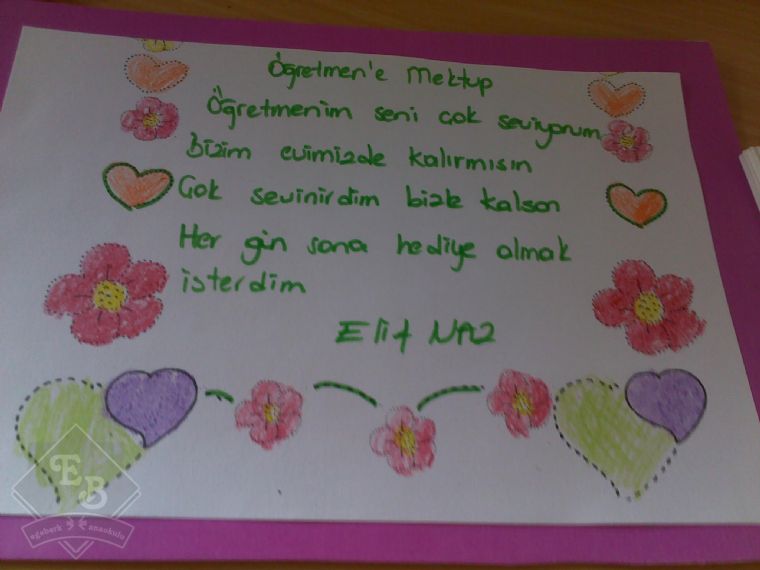 Öğretmen'e Mektup
Öğretmenim seni çok seviyorum
Bizim evimizde kalırmısın
Çok sevinirdim bizle kalsan
Her gün sana hediye almak
isterdim
Elif NAZ
EB
egeberk anaokulu